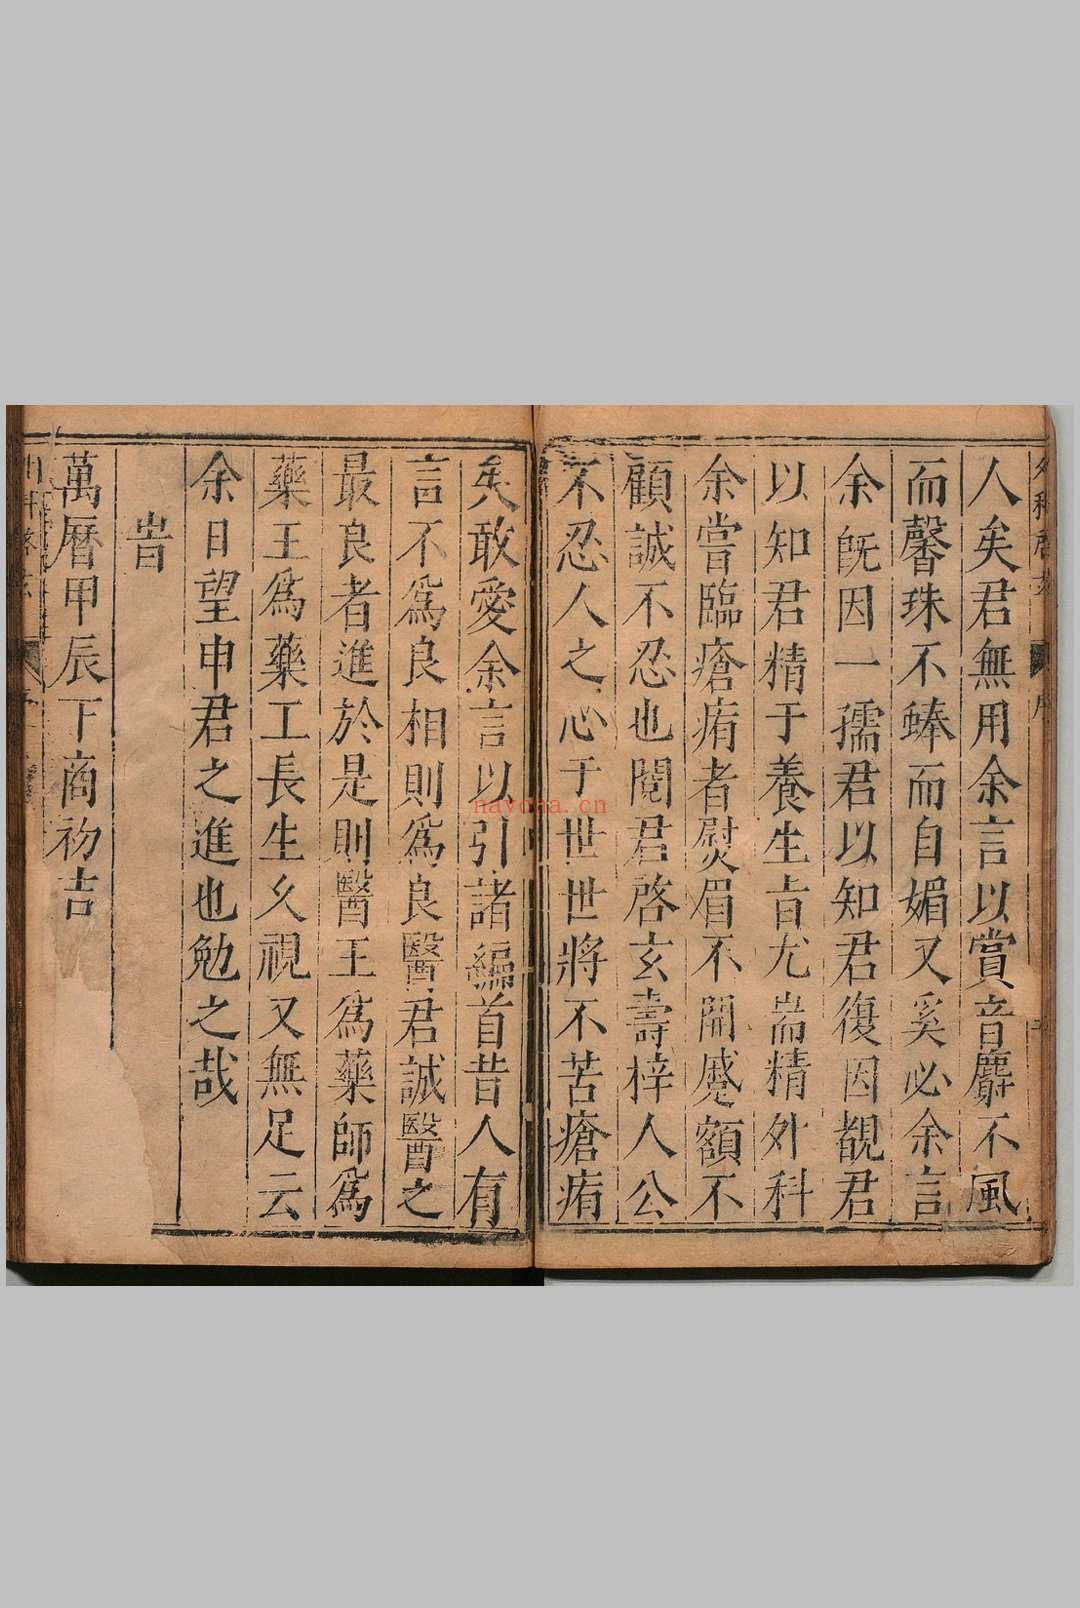 人矣君無用余言以賞音麝不風
而馨珠不蜯而自媚又奚必余言
余既因一孺君以知君復因覩君
以知君精于養生旨尤耑精外科
余嘗臨瘡痏者熨眉不開蹙額不
顧誠不忍也閱君啓玄壽梓人公
不忍人之心于世世將不苦瘡痏
矣敢愛余言以引諸編首昔人有
言不爲良相則爲良醫君誠醫之
最良者進於是則醫王爲藥師爲
藥王爲藥工長生久視又無足云
余日望申君之進也勉之哉
旹
萬曆甲辰下商初吉
nayona.cn